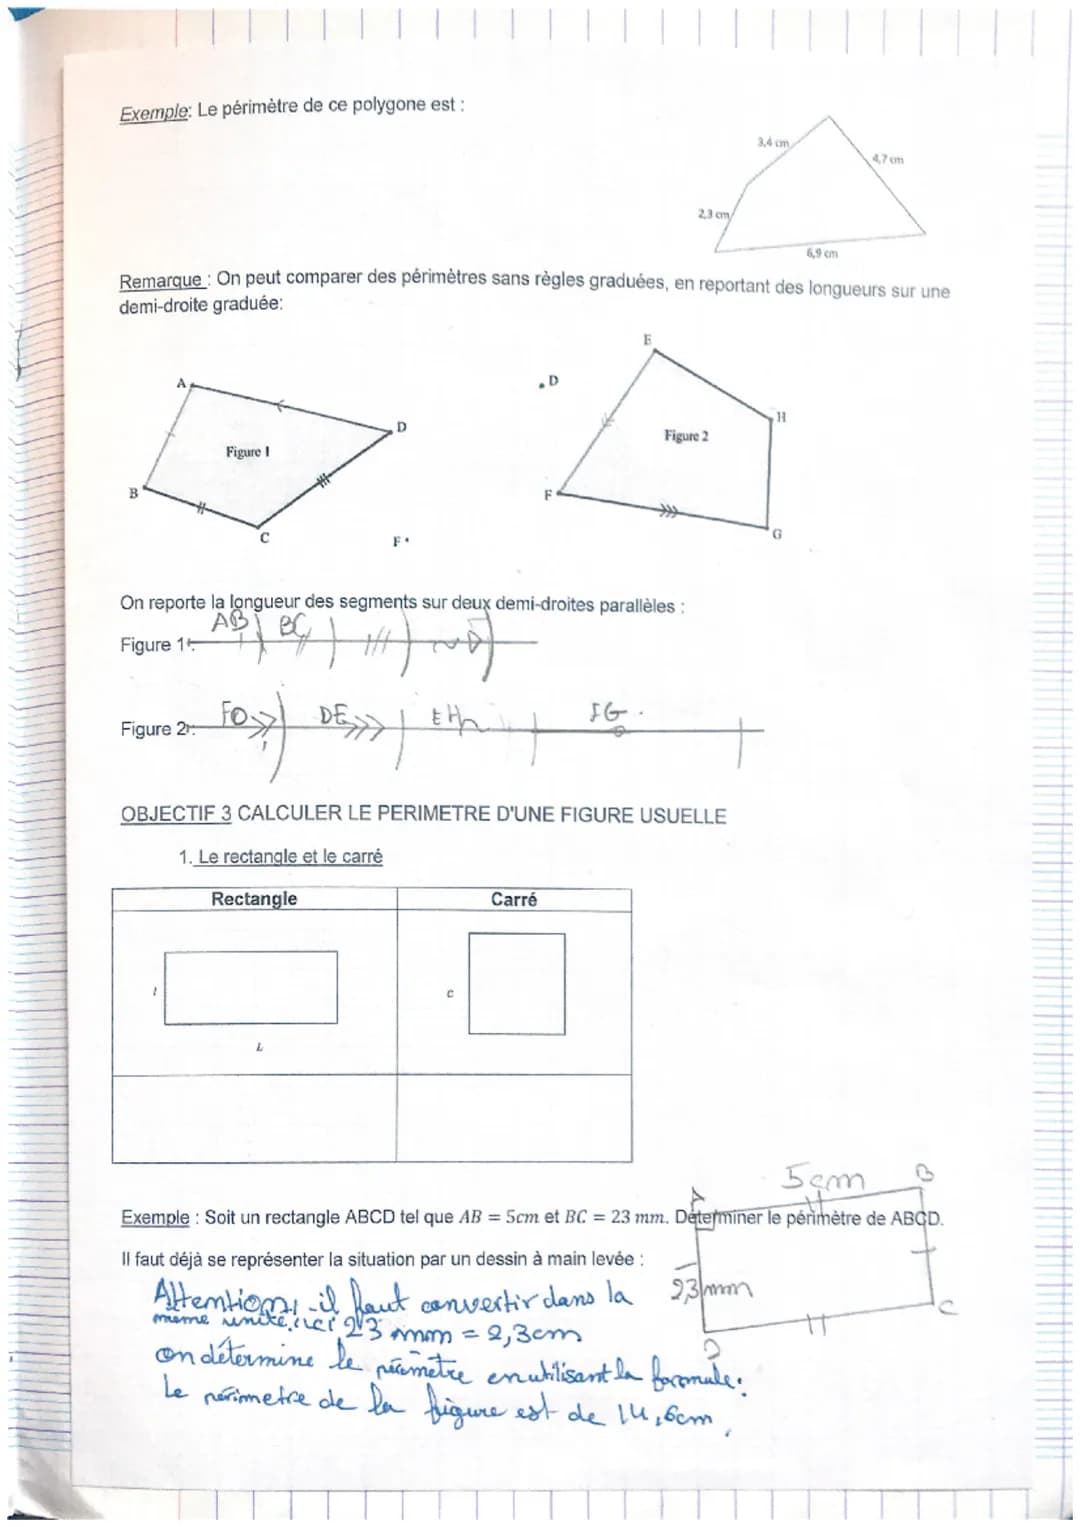 Exemple: Le périmètre de ce polygone est :
3,4 cm
4,7 cm
2,3 cm
6,9 cm
Remarque : On peut comparer des périmètres sans règles graduées, en reportant des longueurs sur une
demi-droite graduée:
E
A
D
H
D
Figure 2
Figure 1
B
F
C
G
F
On reporte la longueur des segments sur deux demi-droites parallèles :
AB BC
Figure 1:
FO DE EH FG
Figure 2:
OBJECTIF 3 CALCULER LE PERIMETRE D'UNE FIGURE USUELLE
1. Le rectangle et le carré
Rectangle Carré
l
c
L
5cm
A B
Exemple : Soit un rectangle ABCD tel que AB = 5cm et BC = 23 mm. Déterminer le périmètre de ABCD.
Il faut déjà se représenter la situation par un dessin à main levée :
23 mm
Attention, il faut convertir dans la
même unité, ici 23 mm = 2,3cm
C
D
on détermine le périmetre en utilisant la formule:
Le périmetre de la figure est de 14,6cm,